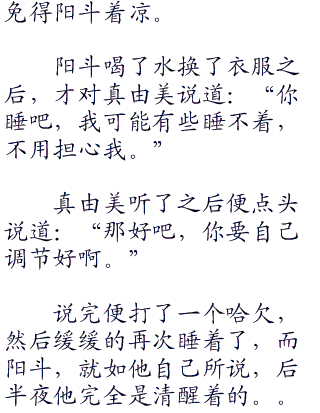 免得阳斗着凉。
阳斗喝了水换了衣服之
后，才对真由美说道：“你
睡吧，我可能有些睡不着，
不用担心我。”
真由美听了之后便点头
说道：“那好吧，你要自己
调节好啊。”
说完便打了一个哈欠，
然后缓缓的再次睡着了，而
阳斗，就如他自己所说，后
半夜他完全是清醒着的。。